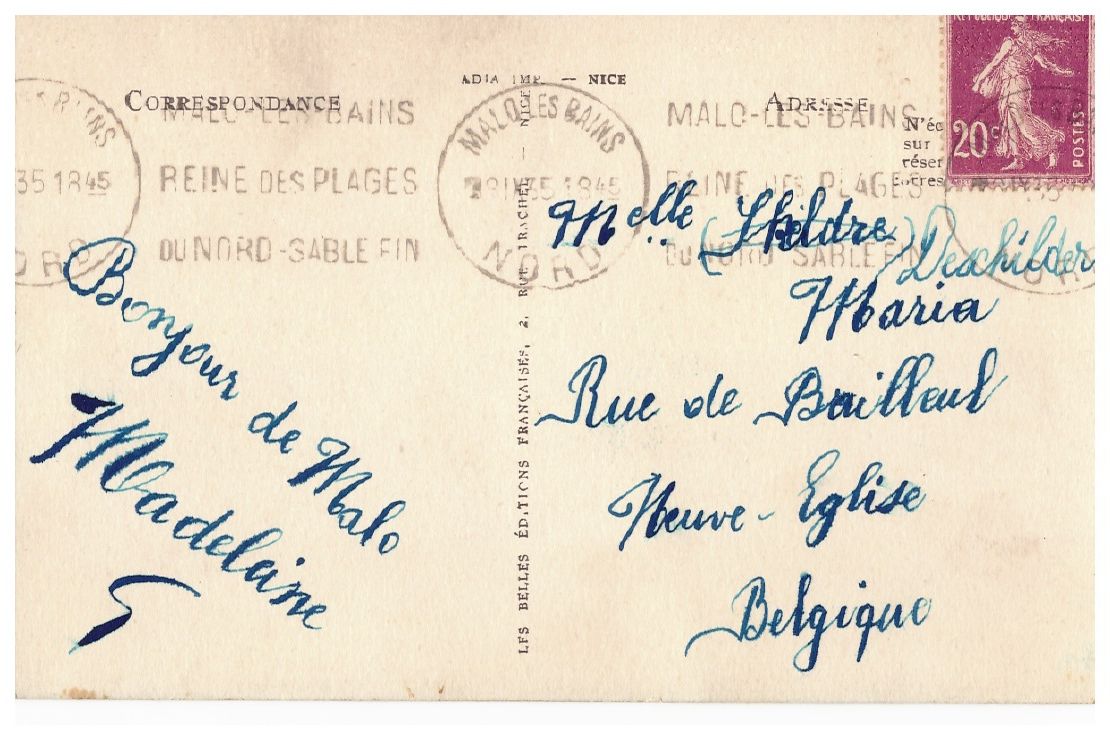 ADIA IMP. — NICE
CORRESPONDANCE
ADRESSE
N'éc
sur
réser
RÉPUBLIQUE FRANÇAISE
20c
POSTES
MALO-LES-BAINS
REINE DES PLAGES
DU NORD-SABLE FIN
MALO LES BAINS
35 18 45
NORD
MALO-LES-BAINS
REINE DES PLAGES
DU NORD SABLE FIN
LES BELLES ÉDITIONS FRANÇAISES, 2, RUE TRACHEL — NICE
Bonjour de Malo
Madeleine
Melle (Shildre) Deschilder
Maria
Rue de Bailleul
Neuve-Eglise
Belgique